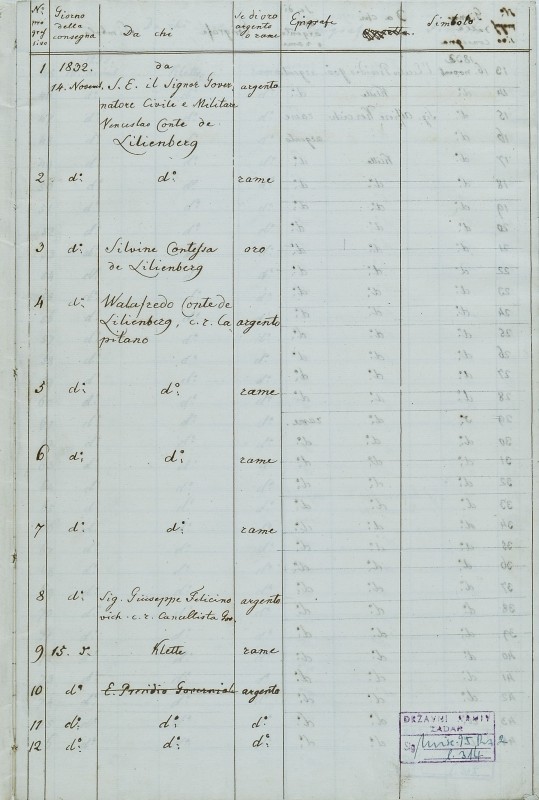 N.º progressivo	Giorno della consegna	Da chi	Se di oro argento o rame	Epigrafe	Simbolo
1	1832.	da
14. Novem.	S. E. il Signor Gover	argento
natore Civile e Militare
Venceslao Conte de
Lilienberg
2	dº	dº	rame
3	dº	Silvine Contessa	oro
de Lilienberg
4	dº	Walafredo Conte de
Lilienberg, c. r. Ca	argento
pitano
5	dº	dº	rame
6	dº	dº	rame
7	dº	dº	rame
8	dº	Sig. Giuseppe Felicino	argento
vich c. r. Cancellista Gov.
9	15. d.	Klette	rame
10	dº	E. Presidio Governial	argento
11	dº	dº	dº
12	dº	dº	dº
DRŽAVNI ARHIV
ZADAR
Sig.